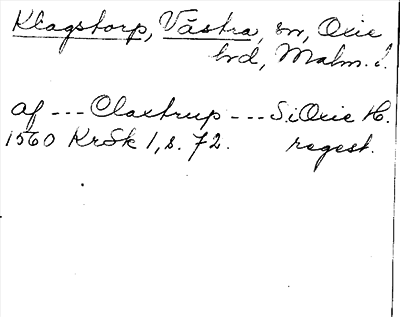 Klagstorp, Västra, sn, Oxie
hd, Malm. l.
af --- Claxtrup --- S. i Oxie H.
1560 KrSk 1, s. 72. regest.